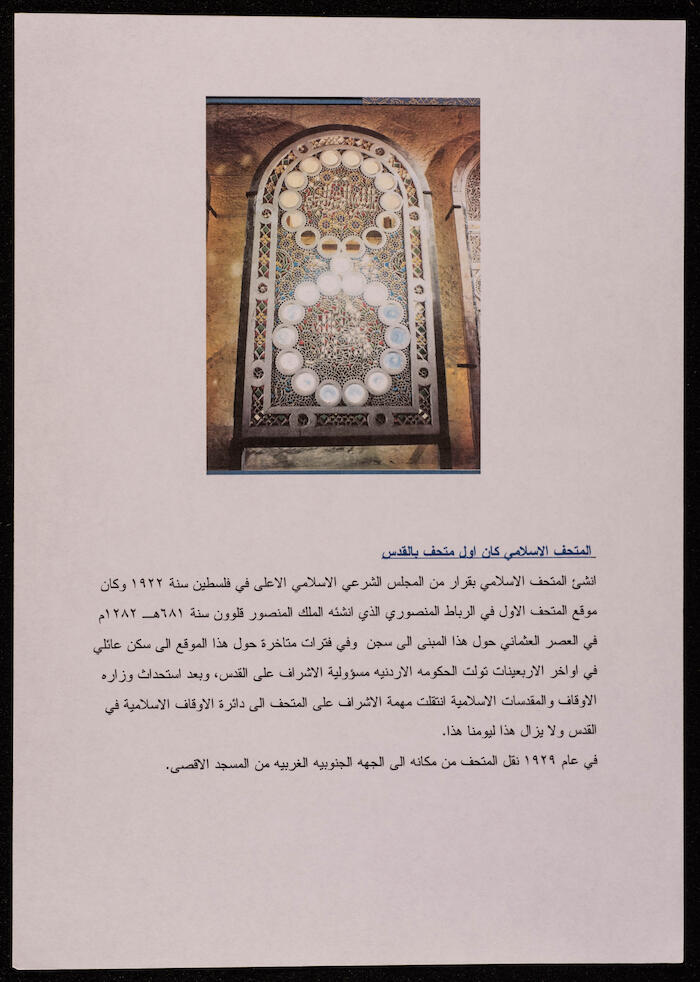 المتحف الاسلامي كان اول متحف بالقدس
انشئ المتحف الاسلامي بقرار من المجلس الشرعي الاسلامي الاعلى في فلسطين سنة ١٩٢٢ وكان
موقع المتحف الاول في الرباط المنصوري الذي انشئه الملك المنصور قلوون سنة ٦٨١هـ ١٢٨٢م
في العصر العثماني حول هذا المبنى الى سجن وفي فترات متاخرة حول هذا الموقع الى سكن عائلي
في اواخر الاربعينات تولت الحكومه الاردنيه مسؤولية الاشراف على القدس، وبعد استحداث وزاره
الاوقاف والمقدسات الاسلامية انتقلت مهمة الاشراف على المتحف الى دائرة الاوقاف الاسلامية في
القدس ولا يزال هذا ليومنا هذا.
في عام ١٩٢٩ نقل المتحف من مكانه الى الجهه الجنوبيه الغربيه من المسجد الاقصى.